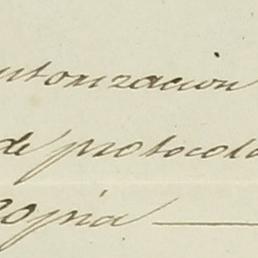 autorizacion
de protocolo
copia